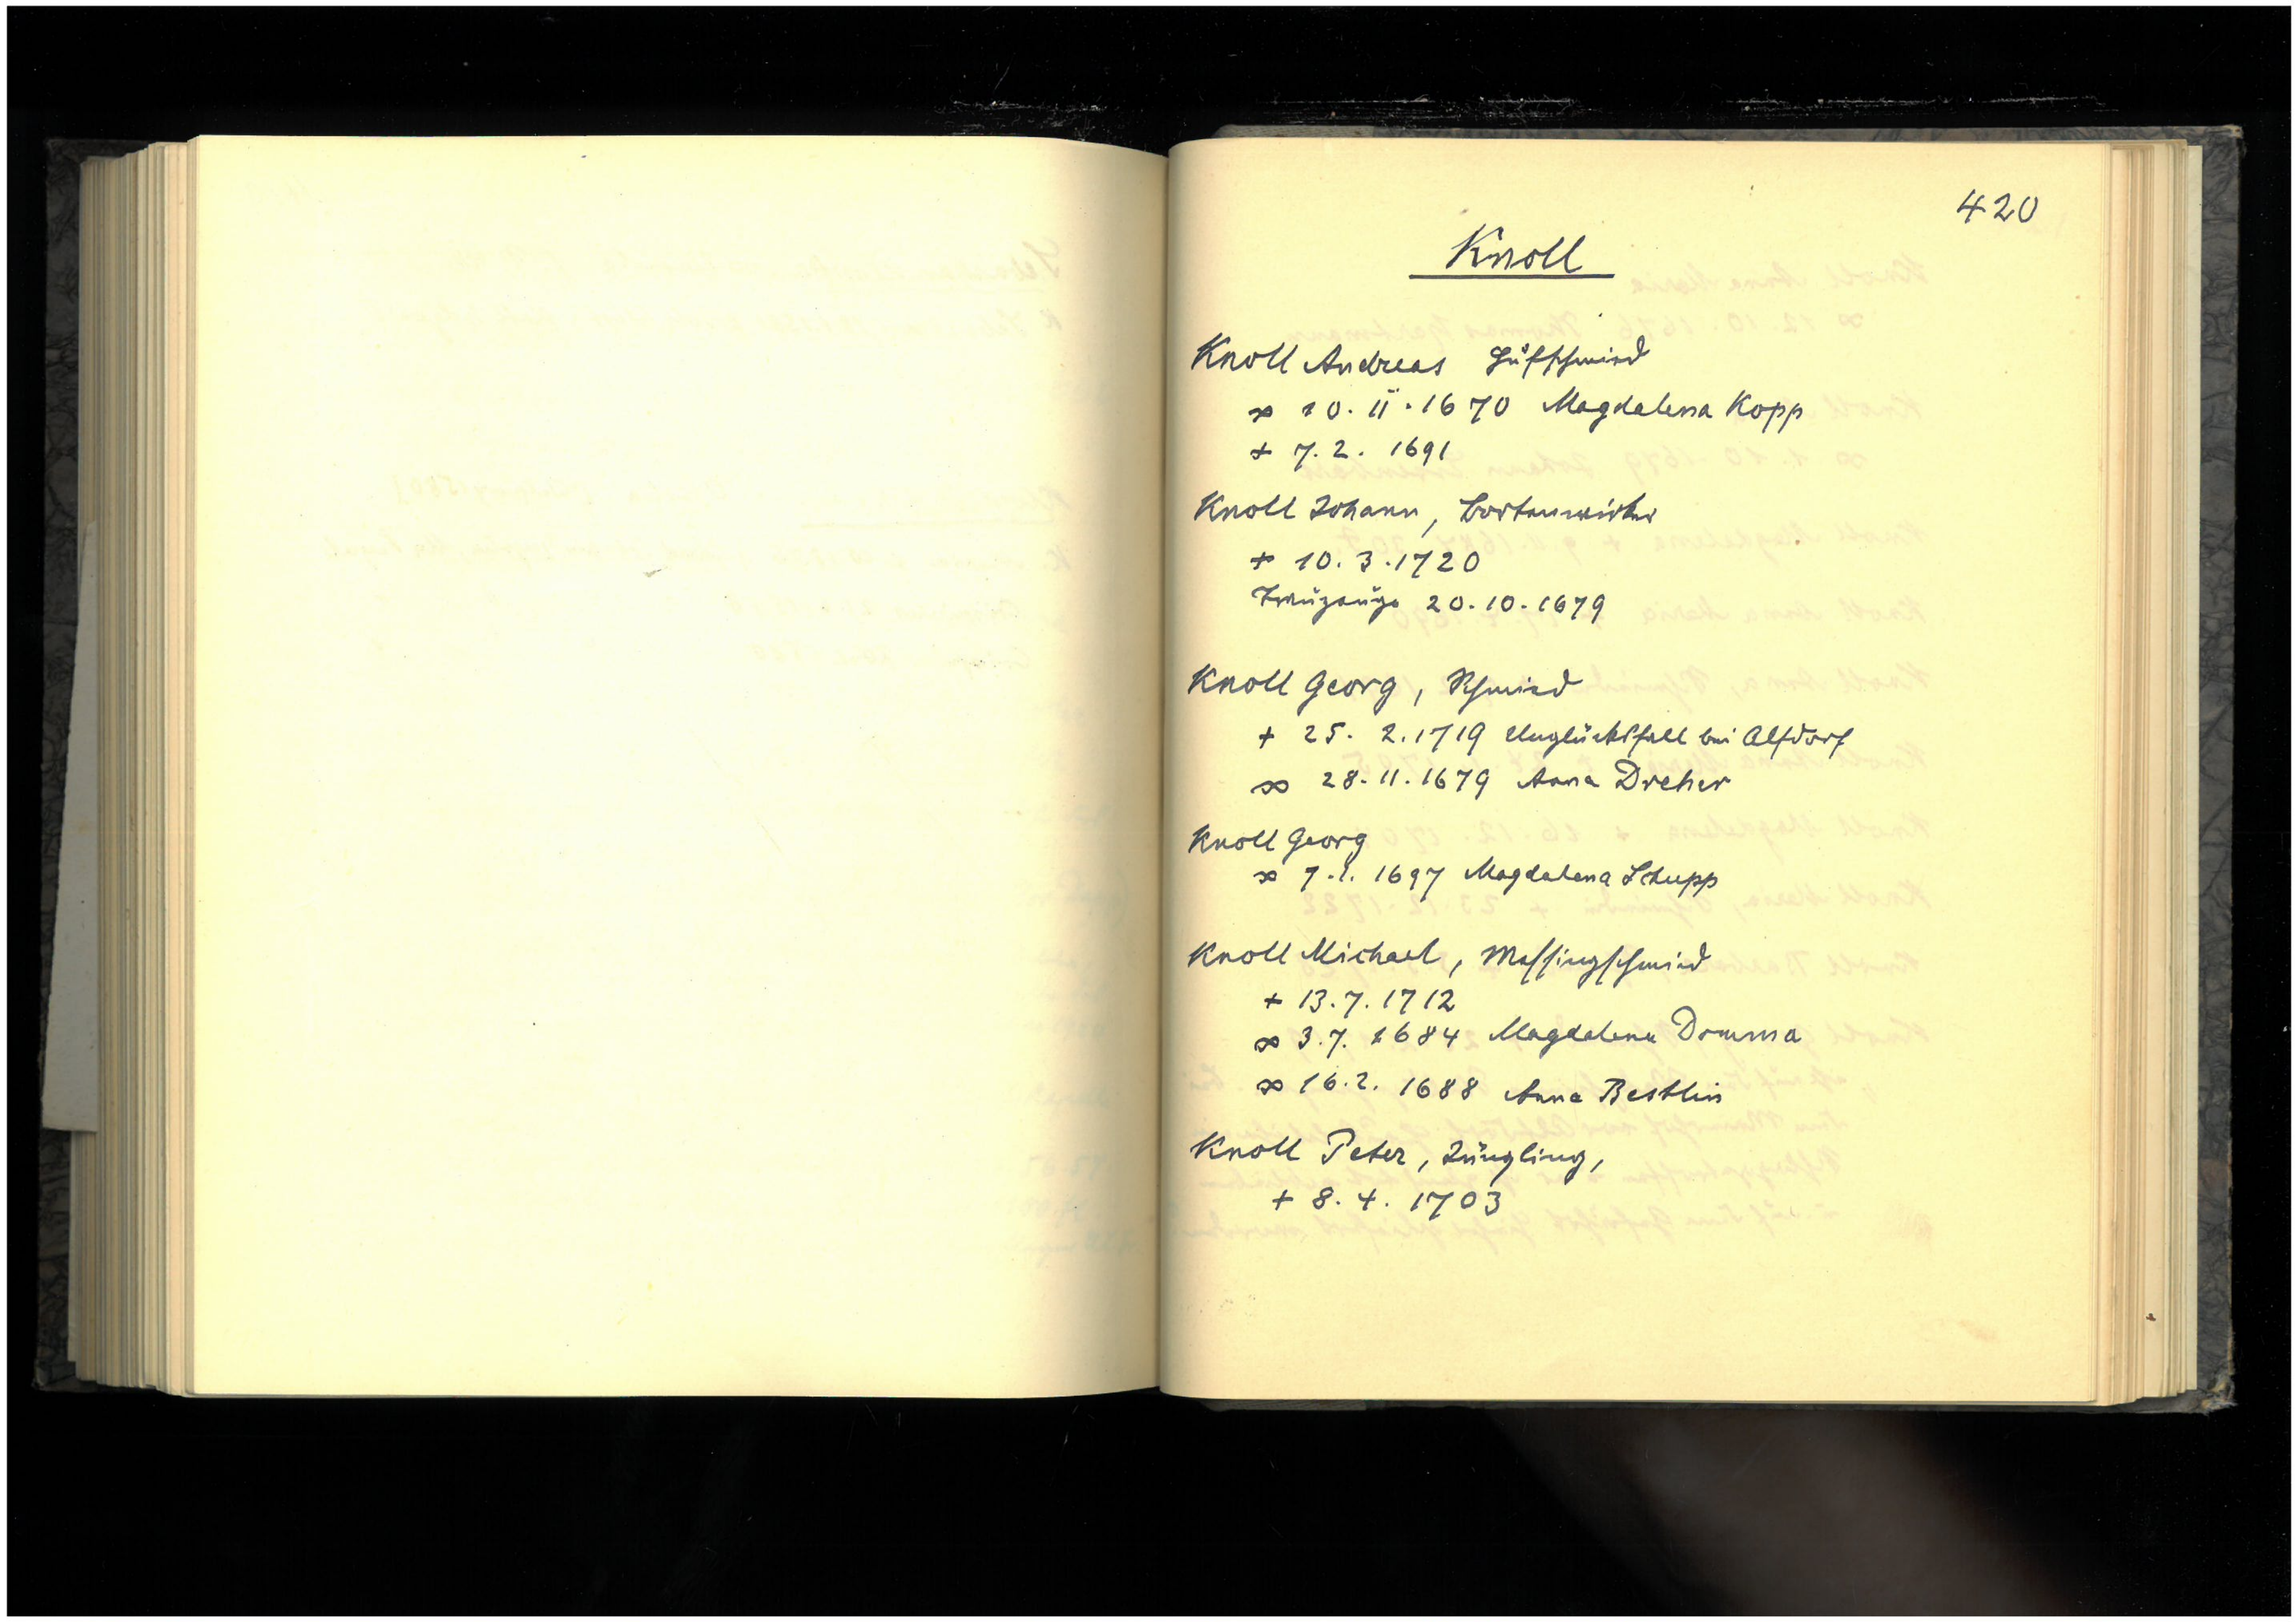 420
Knoll
Knoll Andreas Hufschmied
⚭ 10. 11. 1670 Magdalena Kopp
+ 7. 2. 1691
Knoll Johann, Bortenwirker
+ 10. 3. 1720
Trauzeuge 20. 10. 1679
Knoll Georg, Schmied
+ 25. 2. 1719 Unglücksfall bei Alfdorf
⚭ 28. 11. 1679 Anna Dreher
Knoll Georg
⚭ 7. 1. 1697 Magdalena Schupp
Knoll Michael, Messingschmied
+ 13. 7. 1712
⚭ 3. 7. 1684 Magdalena Domma
⚭ 16. 2. 1688 Anna Bestlin
Knoll Peter, Jüngling,
+ 8. 4. 1703